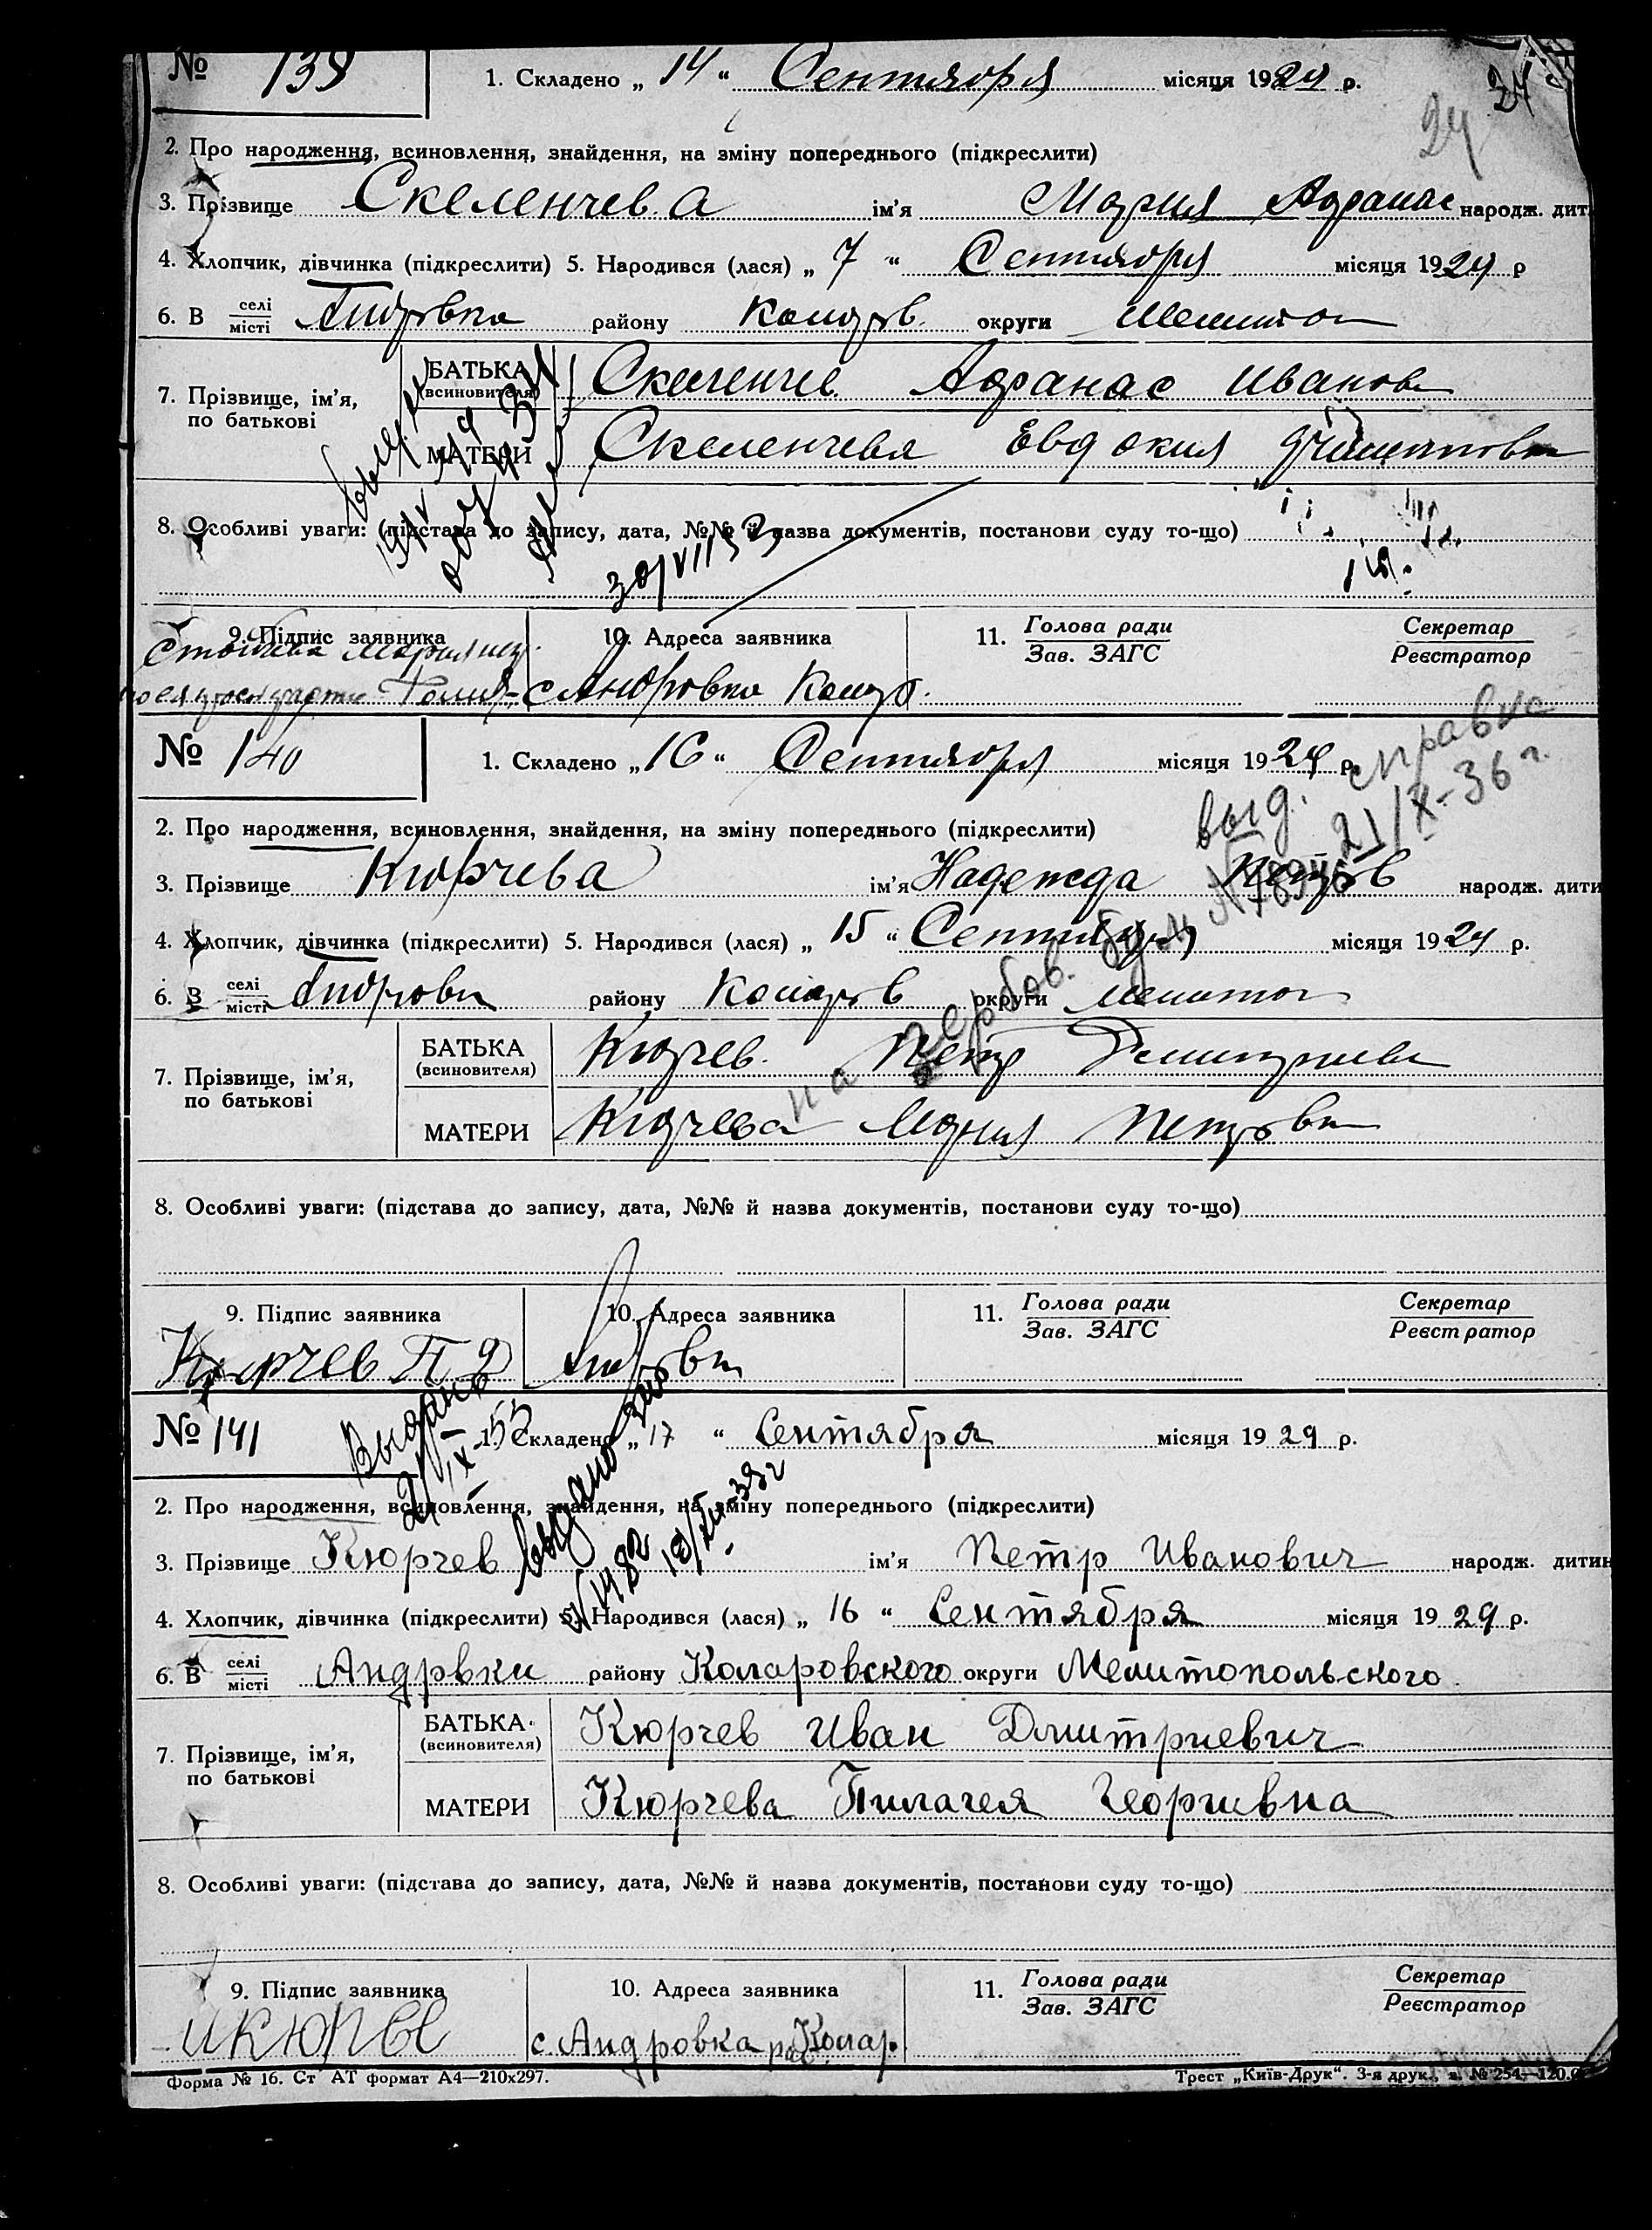 № 139 1. Складено „ 14 “ Сентября місяця 1929 р.
24 34
2. Про народження, всиновлення, знайдення, на зміну попереднього (підкреслити)
3. Прізвище Скеленчева ім'я Мария Афанас народж. дит
4. Хлопчик, дівчинка (підкреслити) 5. Народився (лася) „ 7 “ Сентября місяця 1929 р
6. В селі/місті Андровка району Колар в. округи Мелитоп
7. Прізвище, ім'я, по батькові
БАТЬКА (всиновителя) Скеленчев Афанас Иванов
МАТЕРИ Скеленчева Евдокия
8. Особливі уваги: (підстава до запису, дата, №№ й назва документів, постанови суду то-що)
30/VII 53
9. Підпис заявника 10. Адреса заявника 11. Голова ради/Зав. ЗАГС Секретар/Реєстратор
с Андровка Колар.
№ 140 1. Складено „ 16 “ Сентября місяця 1929 р.
выд. справка
21/X-36 г.
2. Про народження, всиновлення, знайдення, на зміну попереднього (підкреслити)
3. Прізвище Кюрчева ім'я Надежда Петров народж. дити
4. Хлопчик, дівчинка (підкреслити) 5. Народився (лася) „ 15 “ Сентября місяця 1929 р.
6. В селі/місті Андровк району Коларов округи Мелитоп
7. Прізвище, ім'я, по батькові
БАТЬКА (всиновителя) Кюрчев Петр Димитриев
МАТЕРИ Кюрчева Мария Петровн
8. Особливі уваги: (підстава до запису, дата, №№ й назва документів, постанови суду то-що)
9. Підпис заявника 10. Адреса заявника 11. Голова ради/Зав. ЗАГС Секретар/Реєстратор
Кюрчев П Д Андровк
№ 141 1. Складено „ 17 “ Сентября місяця 1929 р.
Выдано
21/IX-55
2. Про народження, всиновлення, знайдення, на зміну попереднього (підкреслити)
выдано
№ 1482
3. Прізвище Кюрчев ім'я Петр Иванович народж. дитин
4. Хлопчик, дівчинка (підкреслити) 5. Народився (лася) „ 16 “ Сентября місяця 1929 р.
6. В селі/місті Андрвки району Коларовского округи Мелитопольского
7. Прізвище, ім'я, по батькові
БАТЬКА (всиновителя) Кюрчев Иван Дмитриевич
МАТЕРИ Кюрчева Пилагея Георгивна
8. Особливі уваги: (підстава до запису, дата, №№ й назва документів, постанови суду то-що)
9. Підпис заявника 10. Адреса заявника 11. Голова ради/Зав. ЗАГС Секретар/Реєстратор
с Андровка Колар.
Форма № 16. Ст АТ формат А4—210х297. Трест „Київ-Друк“. 3-я друк., з. № 254—120.0